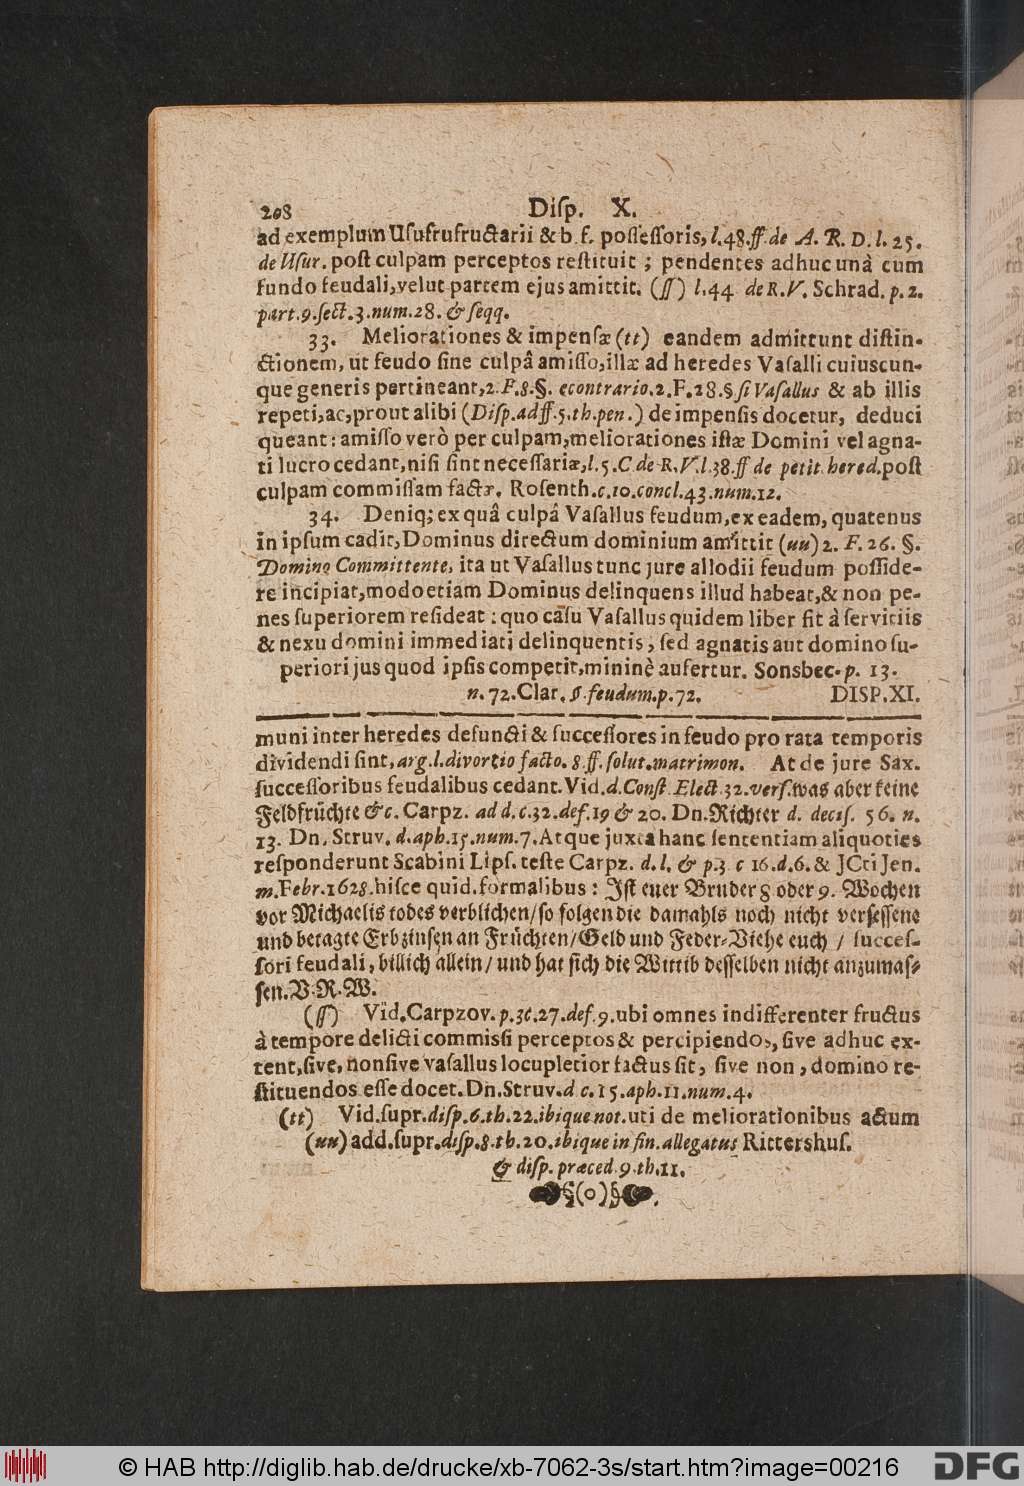 208 Diſp. X.
ad exemplum Uſufrufructarii & b. f. poſſeſſoris, l. 48. ff. de A. R. D. l. 25.
de Uſur. poſt culpam perceptos reſtituit ; pendentes adhuc unà cum
fundo feudali, velut partem ejus amittit. (ſſ) l. 44 de R. V. Schrad. p. 2.
part. 9. ſect. 3. num. 28. & ſeqq.
33. Meliorationes & impenſæ (tt) eandem admittunt diſtin-
ctionem, ut feudo ſine culpâ amiſſo, illæ ad heredes Vaſalli cuiuscun-
que generis pertineant, 2. F. 8. §. econtrario. 2. F. 28. § ſi Vaſallus & ab illis
repeti, ac, prout alibi (Diſp. ad ff. 5. th. pen.) de impenſis docetur, deduci
queant : amiſſo verò per culpam, meliorationes iſtæ Domini vel agna-
ti lucro cedant, niſi ſint neceſſariæ, l. 5. C de R. V. l. 38. ff de petit. hered. poſt
culpam commiſſam factæ. Roſenth. c. 10. concl. 43. num. 12.
34. Deniq; ex quâ culpâ Vaſallus feudum, ex eadem, quatenus
in ipſum cadit, Dominus directum dominium amittit (uu) 2. F. 26. §.
Domino Committente, ita ut Vaſallus tunc jure allodii feudum poſſide-
re incipiat, modo etiam Dominus delinquens illud habeat, & non pe-
nes ſuperiorem reſideat : quo caſu Vaſallus quidem liber fit à ſervitiis
& nexu domini immediati delinquentis, ſed agnatis aut domino ſu-
periori jus quod ipſis competit, mininè aufertur. Sonsbec. p. 13.
n. 72. Clar. §. feudum. p. 72. DISP. XI.
muni inter heredes defuncti & ſucceſſores in feudo pro rata temporis
dividendi ſint, arg. l. divortio facto. 8. ff. ſolut. matrimon. At de jure Sax.
ſucceſſoribus feudalibus cedant. Vid. d. Conſt. Elect. 32. verſ. was aber keine
Feldfrüchte &c. Carpz. ad d. c. 32. def. 19 & 20. Dn. Richter d. deciſ. 56. n.
13. Dn. Struv. d. aph. 15. num. 7. Atque juxta hanc ſententiam aliquoties
reſponderunt Scabini Lipſ. teſte Carpz. d. l. & p. 3 c 16. d. 6. & JCti Jen.
m. Febr. 1628. hiſce quid. formalibus : Iſt euer Bruder 8 oder 9. Wochen
vor Michaelis todes verblichen / ſo folgen die damahls noch nicht verſeſſene
und betagte Erbzinſen an Früchten / Geld und Feder-Viehe euch / ſucceſ-
ſori feudali, billich allein / und hat ſich die Wittib deſſelben nicht anzumaſ-
ſen. V. R. W.
(ſſ) Vid. Carpzov. p. 3 c. 27. def. 9. ubi omnes indifferenter fructus
à tempore delicti commiſſi perceptos & percipiendos, ſive adhuc ex-
tent, ſive, non ſive vaſallus locupletior factus ſit, ſive non, domino re-
ſtituendos eſſe docet. Dn. Struv. d c. 15. aph. 11. num. 4.
(tt) Vid. ſupr. diſp. 6. th. 22. ibique not. uti de meliorationibus actum
(uu) add. ſupr. diſp. 8. th. 20. ibique in fin. allegatus Rittershuſ.
& diſp. præced. 9. th. 11.
§(o)§
© HAB http://diglib.hab.de/drucke/xb-7062-3s/start.htm?image=00216 DFG